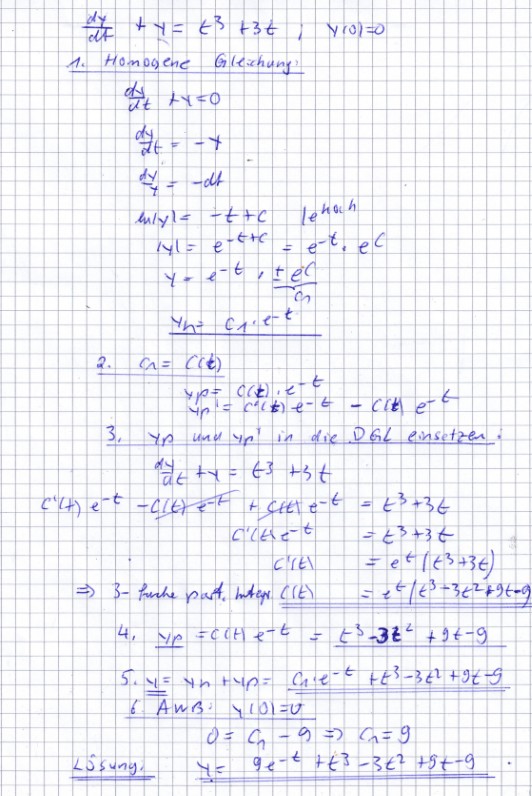 dy/dt + y = t³ + 3t ; y(0)=0
1. Homogene Gleichung:
dy/dt + y = 0
dy/dt = -y
dy/y = -dt
ln|y| = -t + C |e hoch
|y| = e^(-t+C) = e^(-t) · e^C
y = e^(-t) · ± e^C
C₁
yh = C₁ · e^(-t)
2. C₁ = C(t)
yp = C(t) · e^(-t)
yp' = C'(t) e^(-t) - C(t) e^(-t)
3. yp und yp' in die DGL einsetzen:
dy/dt + y = t³ + 3t
C'(t) e^(-t) - C(t) e^(-t) + C(t) e^(-t) = t³ + 3t
C'(t) e^(-t) = t³ + 3t
C'(t) = e^t (t³ + 3t)
⇒ 3-fache part. Integr. C(t) = e^t (t³ - 3t² + 9t - 9
4. yp = C(t) e^(-t) = t³ - 3t² + 9t - 9
5. y = yh + yp = C₁ · e^(-t) + t³ - 3t² + 9t - 9
6. AWB: y(0)=0
0 = C₁ - 9 ⇒ C₁ = 9
Lösung: y = 9e^(-t) + t³ - 3t² + 9t - 9